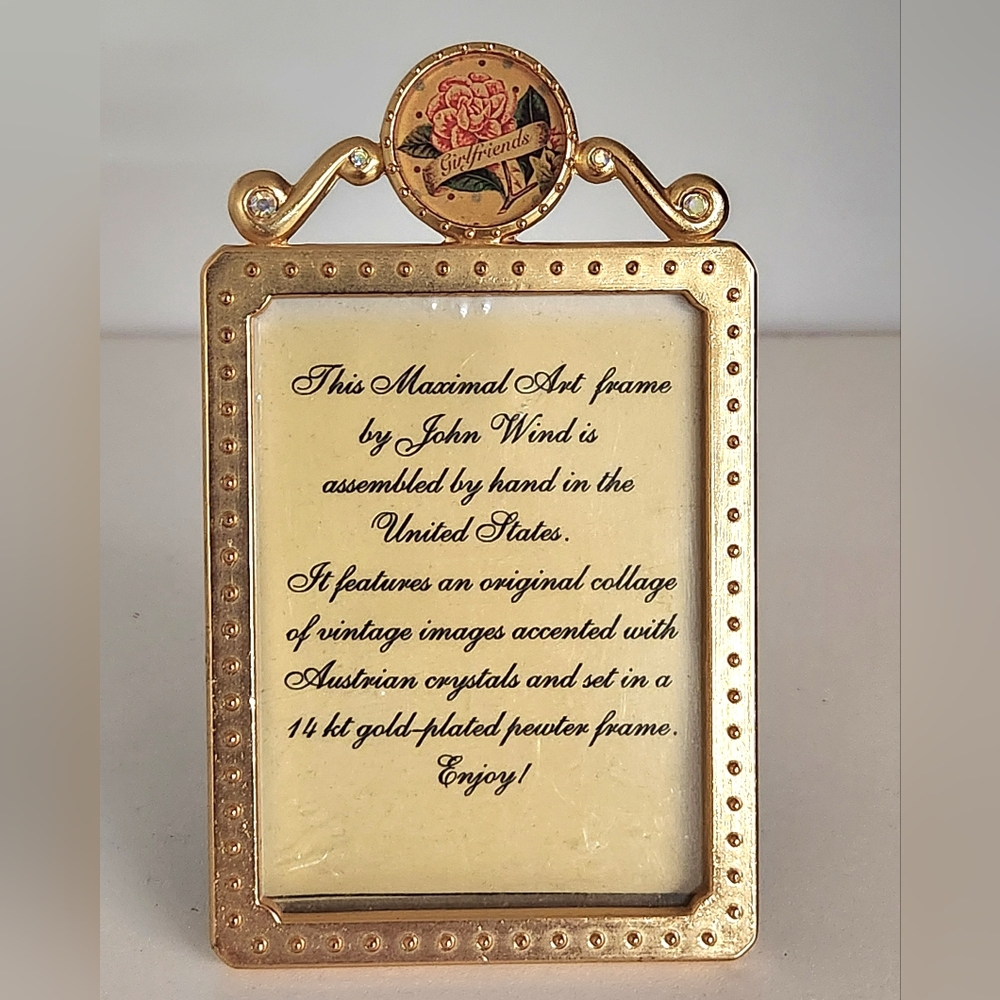 Girlfriends
This Maximal Art frame
by John Wind is
assembled by hand in the
United States.
It features an original collage
of vintage images accented with
Austrian crystals and set in a
14 kt gold-plated pewter frame.
Enjoy!